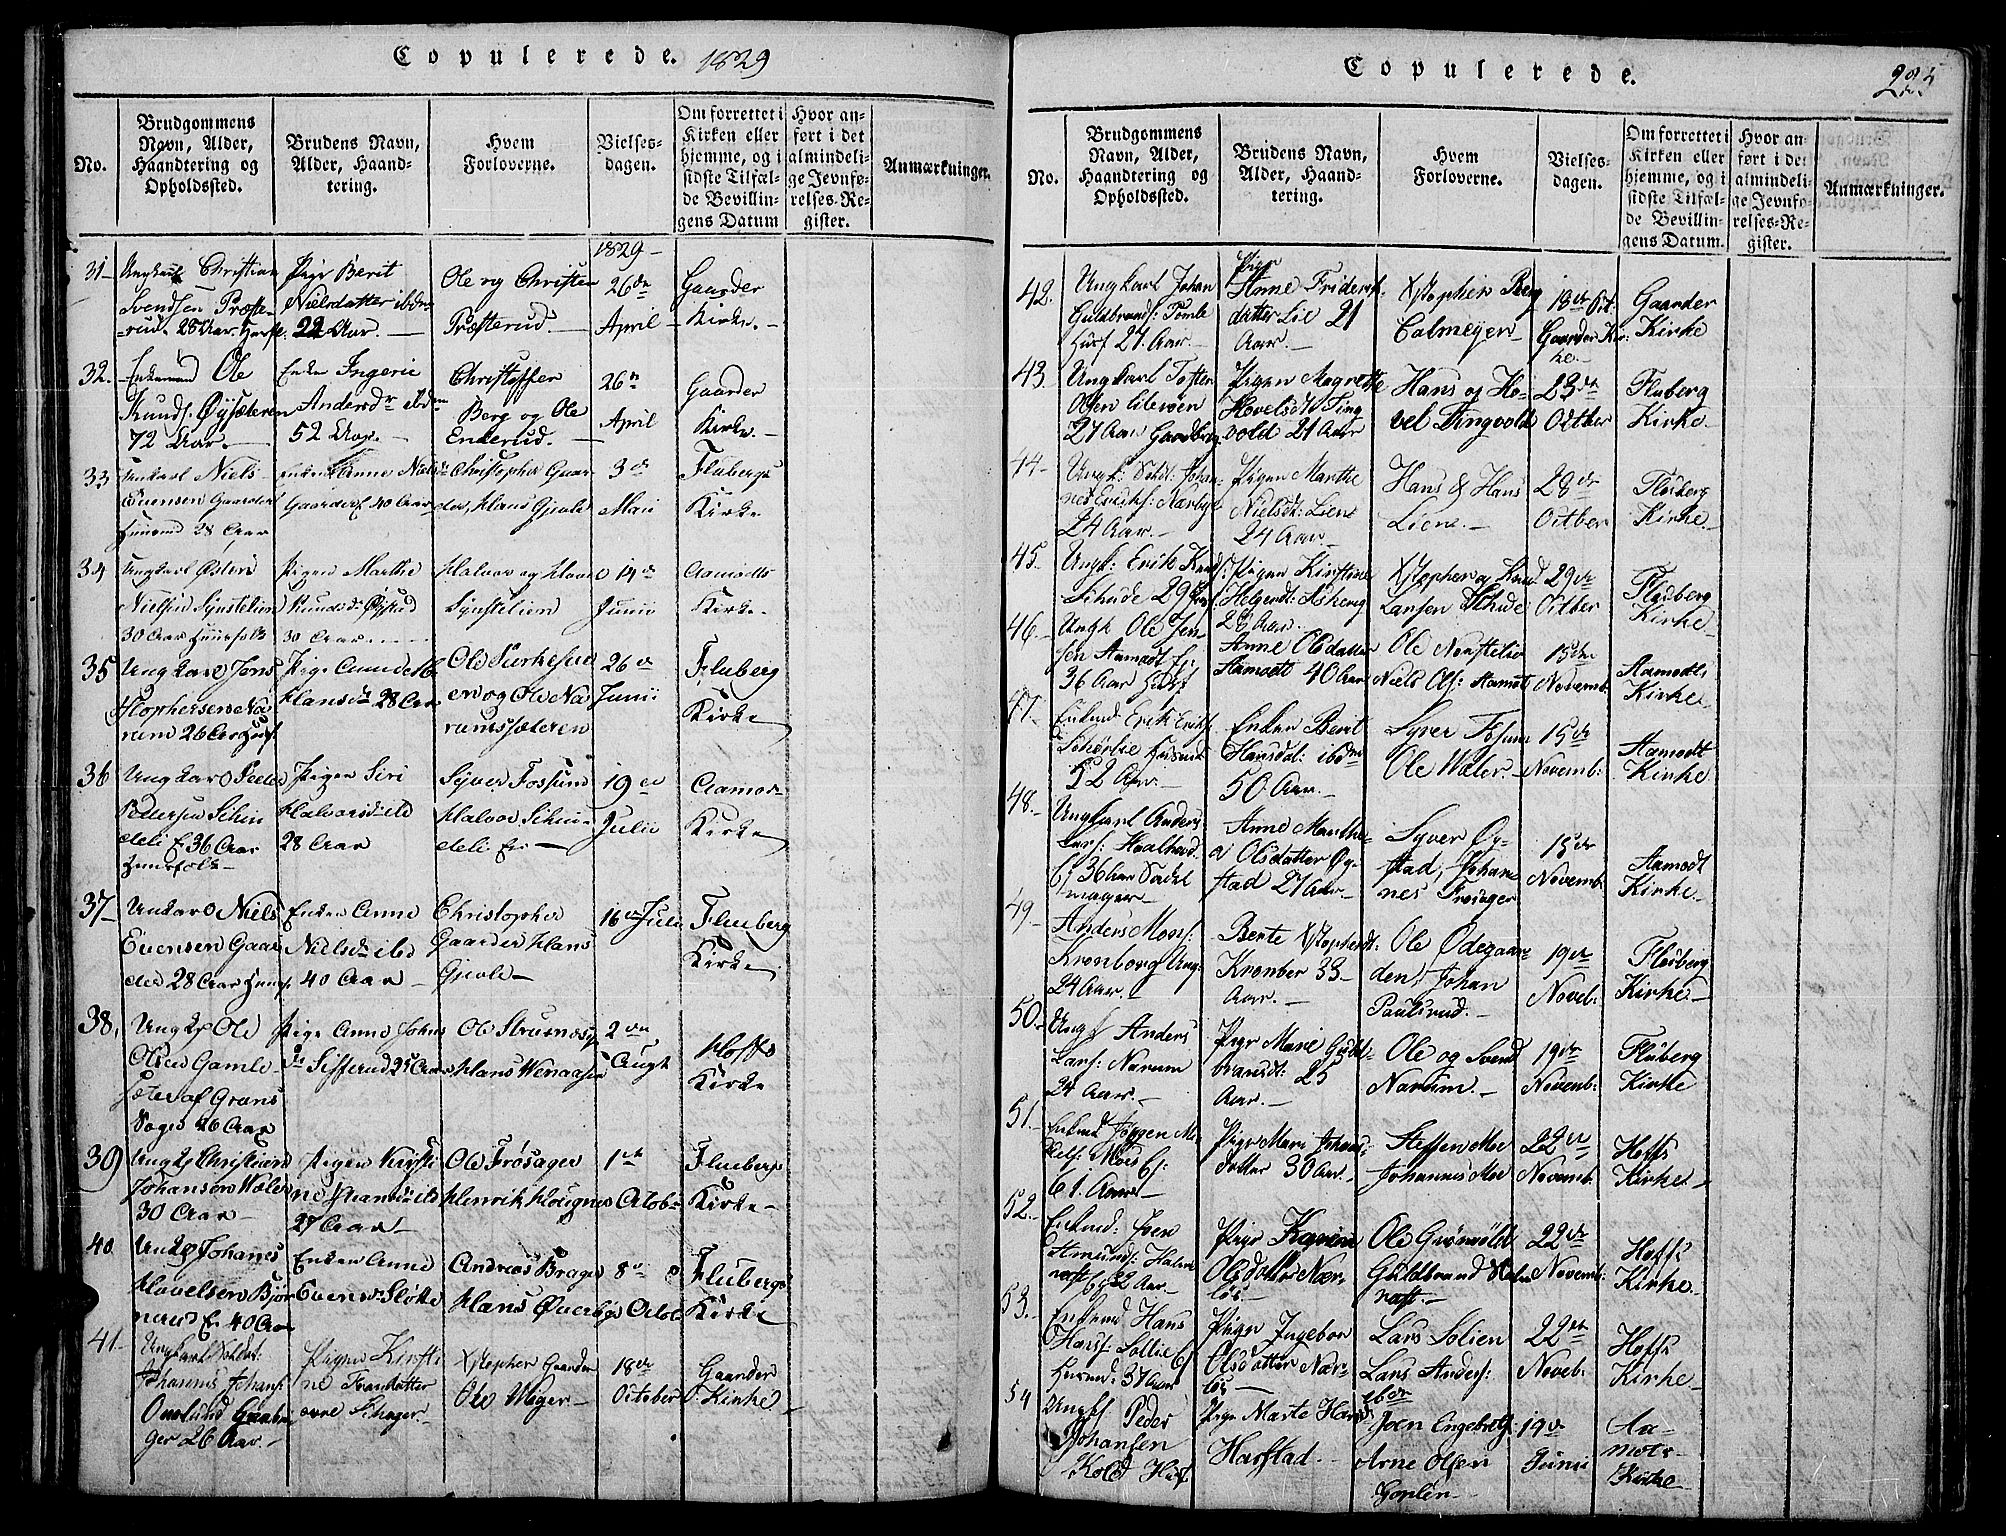 Copulerede. 1829
No.
Brudgommens
Navn, Alder,
Haandtering og
Opholdssted.
Brudens Navn,
Alder, Haand-
tering.
Hvem
Forloverne.
Vielses-
dagen.
Om forrettet i
Kirken eller
hjemme, og i
sidste Tilfæl-
de Bevillin-
gens Datum
Hvor an-
ført i det
almindeli-
ge Jevnfø-
relses-Re-
gister.
Anmærkninger.
1829
31
Ungkarl Christian
Svendsen Præste-
rud. 28 Aar
Pige Berit
Nielsdatter ibdm
22 Aar.
Ole og Christen
Præsterud.
26de
April
Gaarder
Kirke.
32.
Enkemand Ole
Knuds. Øysæteren
72 Aar.
Enke Ingerie
Andersdr ibdm
52 Aar.
Christoffer
Berg og Ole
Enderud.
26n
April
Gaarder
Kirke.
33
Unkarl Niels
Evensen Gaarder
28 Aar
Enken Anne Niels
Gaarder 40 Aar
Christopher Gaar
der, Hans Gjøvle
3de
Mai
Fluberg
Kirke
34
Ungkarl Østen
Nielsen Synstelien
30 Aar Huusfolk
Pigen Marthe
Knudsdr
30 Aar
Halvor og Hans
Synstelien
14de
Junii
Aamodts
Kirke.
35
Ungkarl Jens
Xstophersen Na
rum 26 Aar Husf.
Pige
Hansdr 28 Aar
Ole
en og Ole Na
rumsæteren
26de
Junii
Fluberg
Kirke
36
Ungkarl Peder
Pedersen Schin
deli E. 36 Aar
Huusfolk
Pigen Siri
Halvorsdr ibd
28 Aar
Syver Fossum
Halvor Schin
deli Ei
19de
Julii
Aamots
Kirke
37
Unkarl Niels
Evensen Gaar
der 28 Aar Huusf
Enken Anne
Nielsdr ibd
40 Aar
Christopher
Gaarder Hans
Gjøvle
16de Juli
Fluberg
Kirke
38.
Ungk. Ole
Olsen Gamle
sæter af Grans
Sogn 26 Aar
Pige Anne Johns
dr Sifferud 25 Aar
Ole Struxnæs
Hans
2den
Augt
Hoffs
Kirke
39
Ungk. Christian
Johansen Wølen
30 Aar
Pigen Kirsti
ne
27 Aar
Ole Frøsager
Henrik Hougner
1ste
Octob
Fluberg
Kirke
40
Ungk. Johanes
Havelsen Bjør
nerud E. 40 Aar
Enken Anne
Evensdr Sløke
Andreas Brager
Hans Øverbye
8de
Octob
Fluberg
Kirke
41.
Ungkarl Soldat
Johannes Johans.
Onslund
ger 26 Aar.
Pigen Kirsti
ne Fransdatter
ovre Schager.
Xstopher Gaarder
Ole Hager
18de
October
Gaarder
Kirke
Copulerede.
225
No.
Brudgommens
Navn, Alder,
Haandtering og
Opholdssted.
Brudens Navn,
Alder, Haand-
tering.
Hvem
Forloverne.
Vielses-
dagen.
Om forrettet i
Kirken eller
hjemme, og i
sidste Tilfæl-
de Bevillin-
gens Datum.
Hvor an-
ført i det
almindeli-
ge Jevnfø-
relses-Re-
gister.
Anmærkninger.
42.
Ungkarl Johan
Guldbrands: Tomle
Husf 27. Aar.
Pigen
Anne Friderich
datter Lie 21
Aar.
Xstopher Berg
Calmeyer
18de Oct.
Gaarder Kir-
ke.
Gaarder
Kirke
43
Ungkarl Tosten
Olsen
27 Aar
Pigen Magrethe
Hovelsdt Ting
vold 21 Aar
Hans og Ho-
vel Tingvold
23de
Octber
Fluberg
Kirke
44
Ungk: Sold: Johan-
nes Eriks:
24 Aar.
Pigen Marthe
Nielsdt: Liene
24 Aar.
Hans & Hans
Liene.
28de
Octber
Fluberg
Kirke
45
Ungk: Erik Knuds:
Schude 29 Aar
Pigen Kirstine
Helgesdt:
28 Aar.
Xstopher og Knud
Larsen Schude
29de
Octber
Fluberg
Kirke
46
Ungk Ole Jen-
sen Aamodt E:
36 Aar Husf
Anne Olsdatter
Aamodt 40 Aar
Ole
Niels Ols: Aamodt
15de
Novemb:
Aamodts
Kirke
47
Enkmd Erik Eriks:
52 Aar.
Enken Berit
Hansdat: ibdm
50 Aar.
Syver Fossum
Ole Wøler
15de
Novemb:
Aamodt
Kirke
48.
Ungkarl Anders
Lars:
E: 36 Aar Sadel
mager
Anne Marthe
a Olsdatter Øy-
stad 27 Aar.
Syver Øy-
stad, Johan
nes Frøsager
15de
Novemb
Aamodt
Kirke
49
Anders Mons:
Kronborg Ung:
24 Aar.
Berte Xstopherdt:
Kronber 33
Aar.
Ole Ødegaar-
den, Johan
Paulsrud.
19de
Noveb:
Fluberg
Kirke
50
Ungk Anders
Lars: Narum
24 Aar.
Pige Marie Guld-
brandt: 25
Aar.
Ole og Svend
Narum
19de
Novemb:
Fluberg
Kirke
51.
Enkmd Jørgen Mi
kels: Moe E:
61. Aar
Pige Mari Johans-
datter 30 Aar.
Steffen Moe
Johannes Moe
22de
Novemb:
Hoffs
Kirke
52.
Enkmd: Iver
Amunds:
Pige Karen
Olsdatter Nær-
løs
Ole Grønvold
Guldbrand
22de
Novemb:
Hoffs
Kirke
53.
Enkemd Hans
Hans: Sollie E:
Husmd: 37 Aar
Pige Ingebor
Olsdatter Nær-
løs
Lars Solien
Lars Anders:
22de
Noveb:
Hoffs
Kirke
54
Ungk Peder
Johansen
Kold Husf
Pige Marte Hans
Harstad.
Joen Engebrets:
Arne Olsen
Goplen
19de
Junii
Aa-
mots-
Kirke